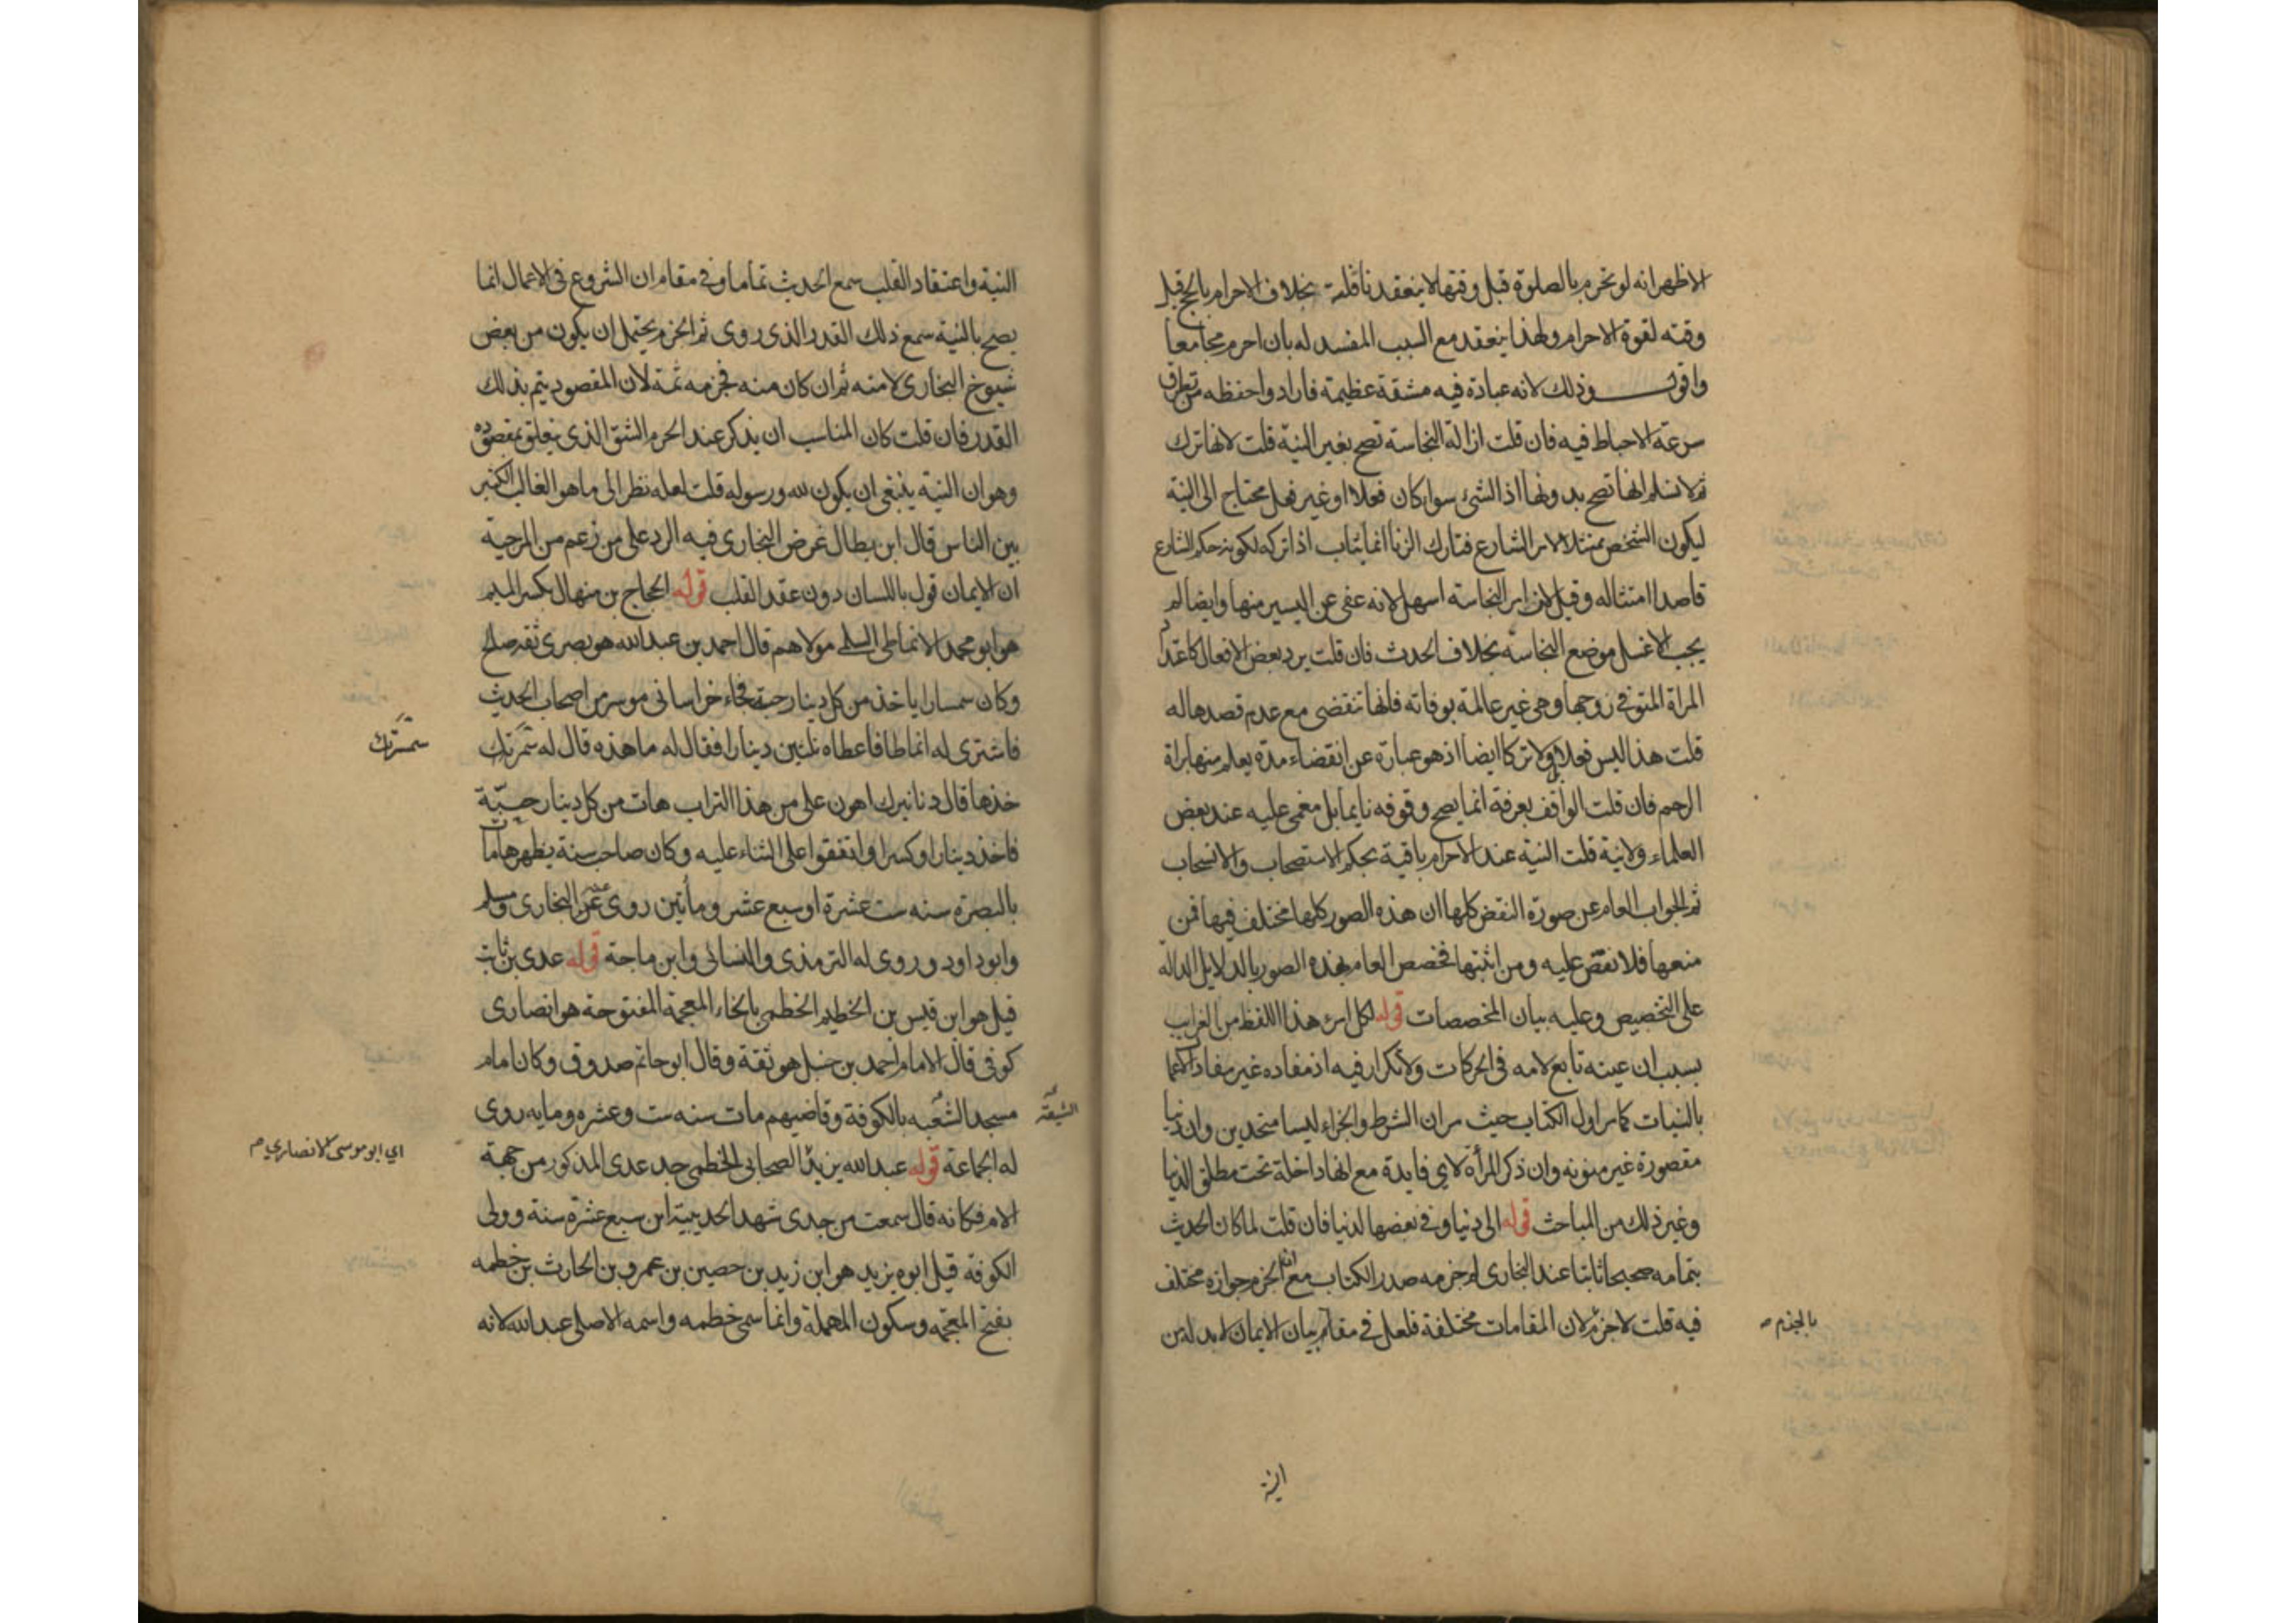 الاظهر انه لو تحرم بالصلوة قبل وقتها لا ينعقد نافلة بخلاف الاحرام بالحج قبل
وقته لقوة الاحرام ولهذا ينعقد مع السبب المفسد له بان احرم مجامعا
واقول وذلك لانه عبادة فيه مشقة عظيمة فارادوا حفظه من تطرق
سرعة الاحباط فيه فان قلت ازالة النجاسة تصح بغير النية قلت لانها ترك
ثم لا نسلم انها تصح بدونها اذ الشئ سواء كان فعلا او غير فعل محتاج الى النية
ليكون الشخص ممتثلا لامر الشارع فتارك الزنا انما يثاب اذا تركه لكونه حكم الشارع
قاصدا امتثاله وقيل لان امر النجاسة اسهل لانه عفى عن اليسير منها وايضا لم
يجب الا غسل موضع النجاسة بخلاف الحدث فان قلت يرد بعض الافعال كاعتداد
المراة المتوفى زوجها وهى غير عالمة بوفاته فانها تنقضى مع عدم قصدها له
قلت هذا ليس فعلا ولا تركا ايضا اذ هو عبارة عن انقضاء مدة يعلم منها براة
الرحم فان قلت الواقف بعرفة انما يصح وقوفه نايما بل مغمى عليه عند بعض
العلماء ولا نية قلت النية عند الاحرام باقية بحكم الاستصحاب والانسحاب
ثم الجواب العام عن صورة النقض كلها ان هذه الصور كلها مختلف فيها فمن
منعها فلا نقض عليه ومن اثبتها فخصص العام بهذه الصور بالدلايل الدالة
على التخصيص وعليه بيان المخصصات قوله لكل امرئ هذا اللفظ من الغرايب
بسبب ان عينه تابع لامه فى الحركات ولا تكرار فيه اذ مفاده غير مفاد الاعمال
بالنيات كما مر اول الكتاب حيث مر ان الشرط والجزاء ليسا متحدين وان دنيا
مقصورة غير منونه وان ذكر المرأة لاي فايدة مع انها داخلة تحت مطلق الدنيا
وغير ذلك من المباحث قوله الى دنيا وفى بعضها لدنيا فان قلت لما كان الحديث
بتمامه صحيحا ثابتا عند البخارى لم خرمه صدر الكتاب مع ان الخرم جوازه مختلف
فيه قلت لا جزم لان المقامات مختلفة فلعل فى مقام بيان الايمان لا بد له من
بالجزم
النية
النية واعتقاد القلب سمع الحديث تماما وفى مقام ان الشروع فى الاعمال انما
يصح بالنية سمع ذلك القدر الذى روى ثم الخرم يحتمل ان يكون من بعض
شيوخ البخارى لا منه ثم ان كان منه فخرمه ثمة لان المقصود يتم بذلك
القدر فان قلت كان المناسب ان يذكر عند الخرم الشق الذى يتعلق بمقصوده
وهو ان النية ينبغى ان يكون لله ورسوله قلت لعله نظر الى ما هو الغالب الكثير
بين الناس قال ابن بطال غرض البخارى فيه الرد على من زعم من المرجية
ان الايمان قول باللسان دون عقد القلب قوله الحجاج بن منهال بكسر الميم
هو ابو محمد الانماطى السلمى مولاهم قال احمد بن عبد الله هو بصرى ثقة رجل صالح
وكان سمسارا ياخذ من كل دينار حبة فجاء خراسانى موسر من اصحاب الحديث
فاشترى له انماطا فاعطاه ثلثين دينارا فقال له ما هذه قال له سمسرتك
سمسرتك
خذها قال دنانيرك اهون على من هذا التراب هات من كل دينار حبة
فاخذ دينارا وكسرا واتفقوا على الثناء عليه وكان صاحب سنة يظهرها مات
بالبصرة سنه ست عشرة او سبع عشر ومأتين روى عنه البخارى ومسلم
وابو داود وروى له الترمذى والنسائى وابن ماجة قوله عدى بن ثابت
قيل هو ابن قيس بن الخطيم الخطمى بالخاء المعجمة المفتوحة هو انصارى
كوفى قال الامام احمد بن حنبل هو ثقة وقال ابو حاتم صدوق وكان امام
مسجد الشيعة بالكوفة وقاضيهم مات سنه ست وعشره ومايه روى
الشيعة
له الجماعة قوله عبد الله بن يزيد الصحابى الخطمى جد عدى المذكور من جهة
اي ابو موسى الانصاري م
الام فكانه قال سمعت من جدى شهد الحديبية ابن سبع عشرة سنة وولى
الكوفة قيل ابوه يزيد هو ابن زيد بن حصين بن عمرو بن الحارث بن خطمه
بفتح المعجمة وسكون المهملة وانما سمى خطمه واسمه الاصلى عبد الله لانه